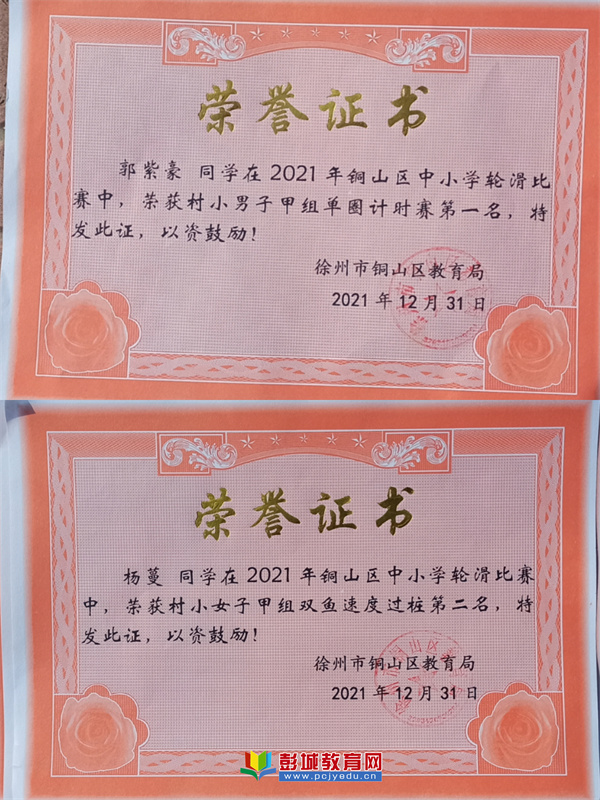 荣誉证书
郭紫豪 同学在2021年铜山区中小学轮滑比
赛中，荣获村小男子甲组单圈计时赛第一名，特
发此证，以资鼓励！
徐州市铜山区教育局
2021年12月31日
荣誉证书
杨蔓 同学在2021年铜山区中小学轮滑比赛
中，荣获村小女子甲组双鱼速度过桩第二名，特
发此证，以资鼓励！
徐州市铜山区教育局
2021年12月31日
彭城教育网
www.pcjyedu.cn